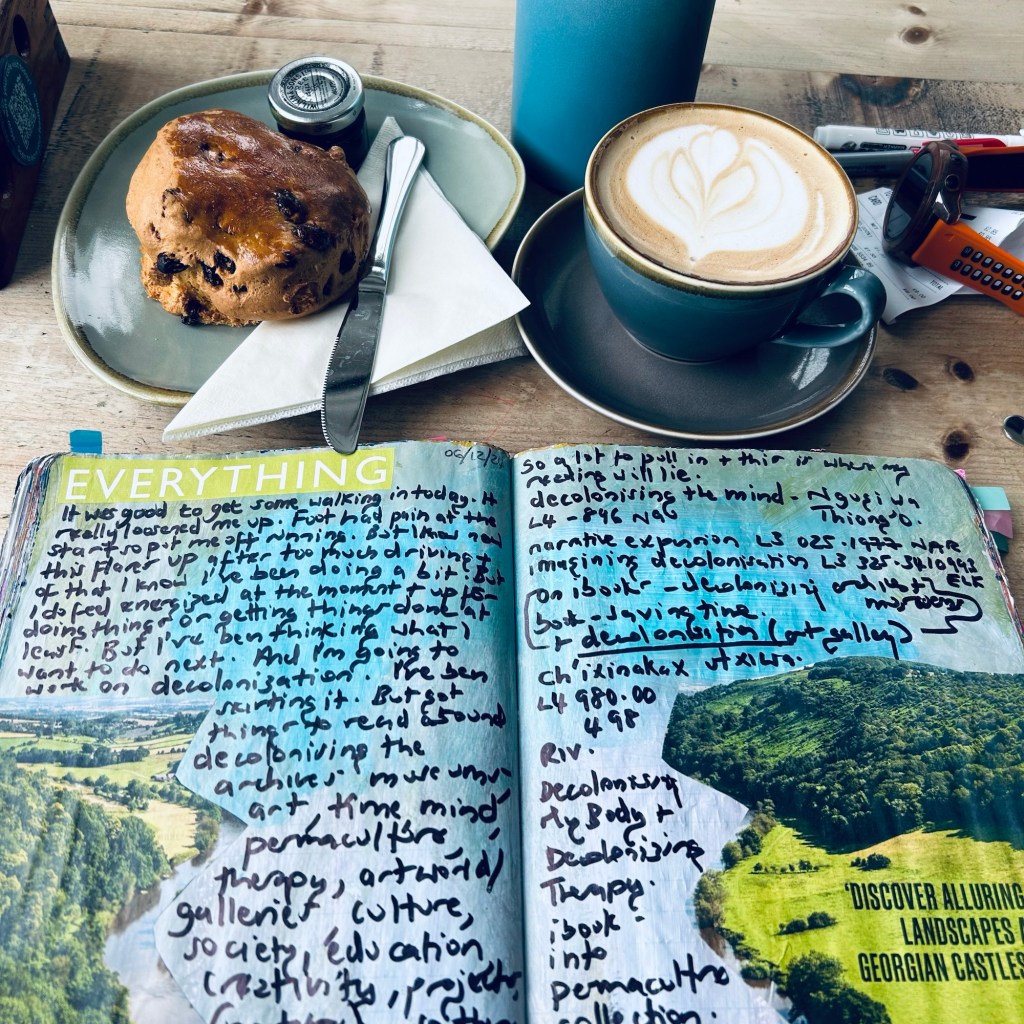 EVERYTHING
06/12/2
It was good to get some walking in today. It
really loosened me up. Foot had pain at the
start so put me off running. But I know now
this flares up after too much driving &
of that I know I've been doing a bit. But
I do feel energised at the moment & up for
doing things or getting things done at
least. But I've been thinking what I
want to do next. And I'm going to
work on decolonisation. I've been
starting it. But got
things to read around
decolonising the
archives museums
art, time, mind,
permaculture,
therapy, artworld/
galleries culture,
society, education
creativity, projects,
So a lot to pull in + this is where my
reading will lie.
decolonising the mind - Ngugi wa
Thiong'O.
L4 - 896 NGU
narrative expansion L3 025.1977 NAR
imagining decolonisation L3 325.3410993
ELK
on ibook - decolonising
book - saving time.
+ decolonisation (art gallery)
ch'ixinakax utxiwa.
L4 980.00
498
RIV.
Decolonising
My Body +
Decolonising
Therapy.
ibook
into
permaculture
collection.
'DISCOVER ALLURING
LANDSCAPES A
GEORGIAN CASTLES